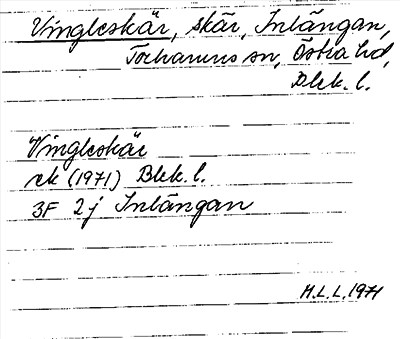 Vingleskär, skär, Inlängan,
Torhamns sn, Östra hd,
Blek. l.
Vingleskär
ek (1971) Blek. l.
3F 2j Inlängan
H.L.L. 1971